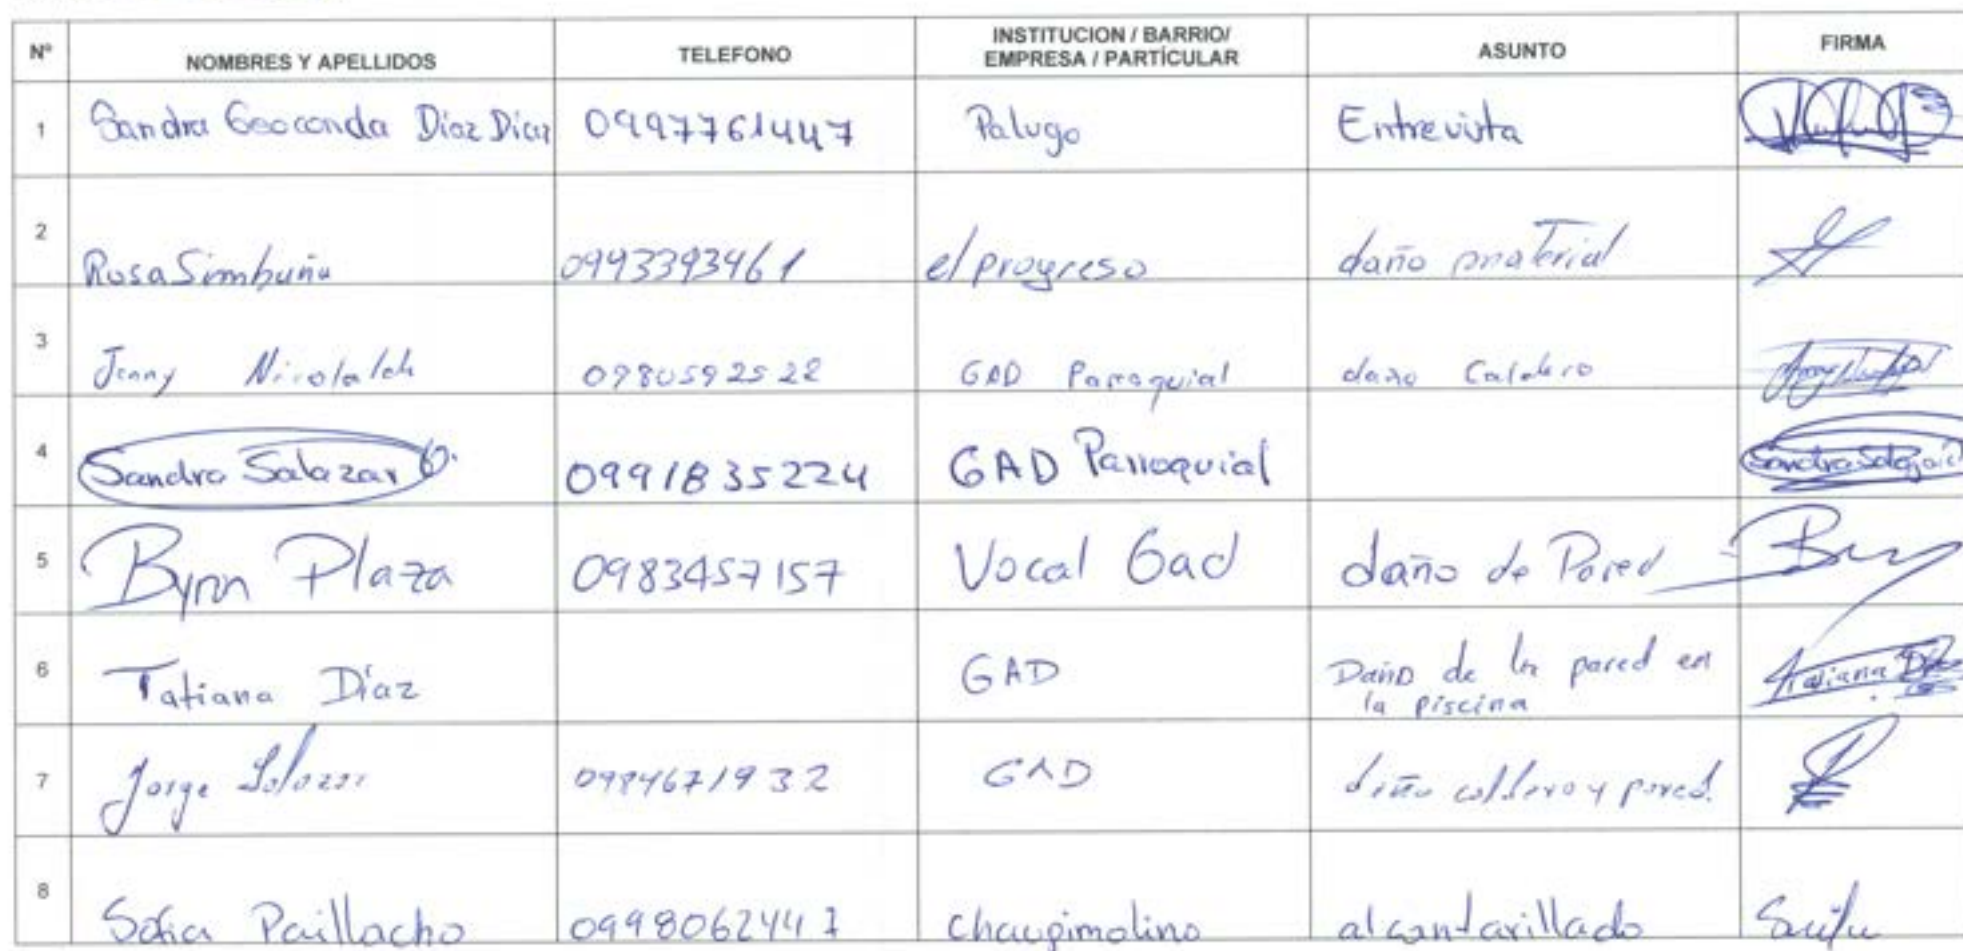 Nº NOMBRES Y APELLIDOS TELEFONO INSTITUCION / BARRIO/ EMPRESA / PARTÍCULAR ASUNTO FIRMA
1 Sandra Geoconda Díaz Díaz 0997761447 Palugo Entrevista
2 Rosa Simbuña 0993393461 el progreso daño material
3 Jenny Nicolalde 0980592522 GAD Parroquial daño Caldero
4 Sandra Salazar O. 0991835224 GAD Parroquial Sandra Salazar
5 Byron Plaza 0983457157 Vocal Gad daño de Pared
6 Tatiana Díaz GAD Daño de la pared en
la piscina Tatiana Díaz
7 Jorge Salazar 0984671932 GAD daño caldero y pared.
8 Sofia Paillacho 0998062447 Chaupimolino alcantarillado